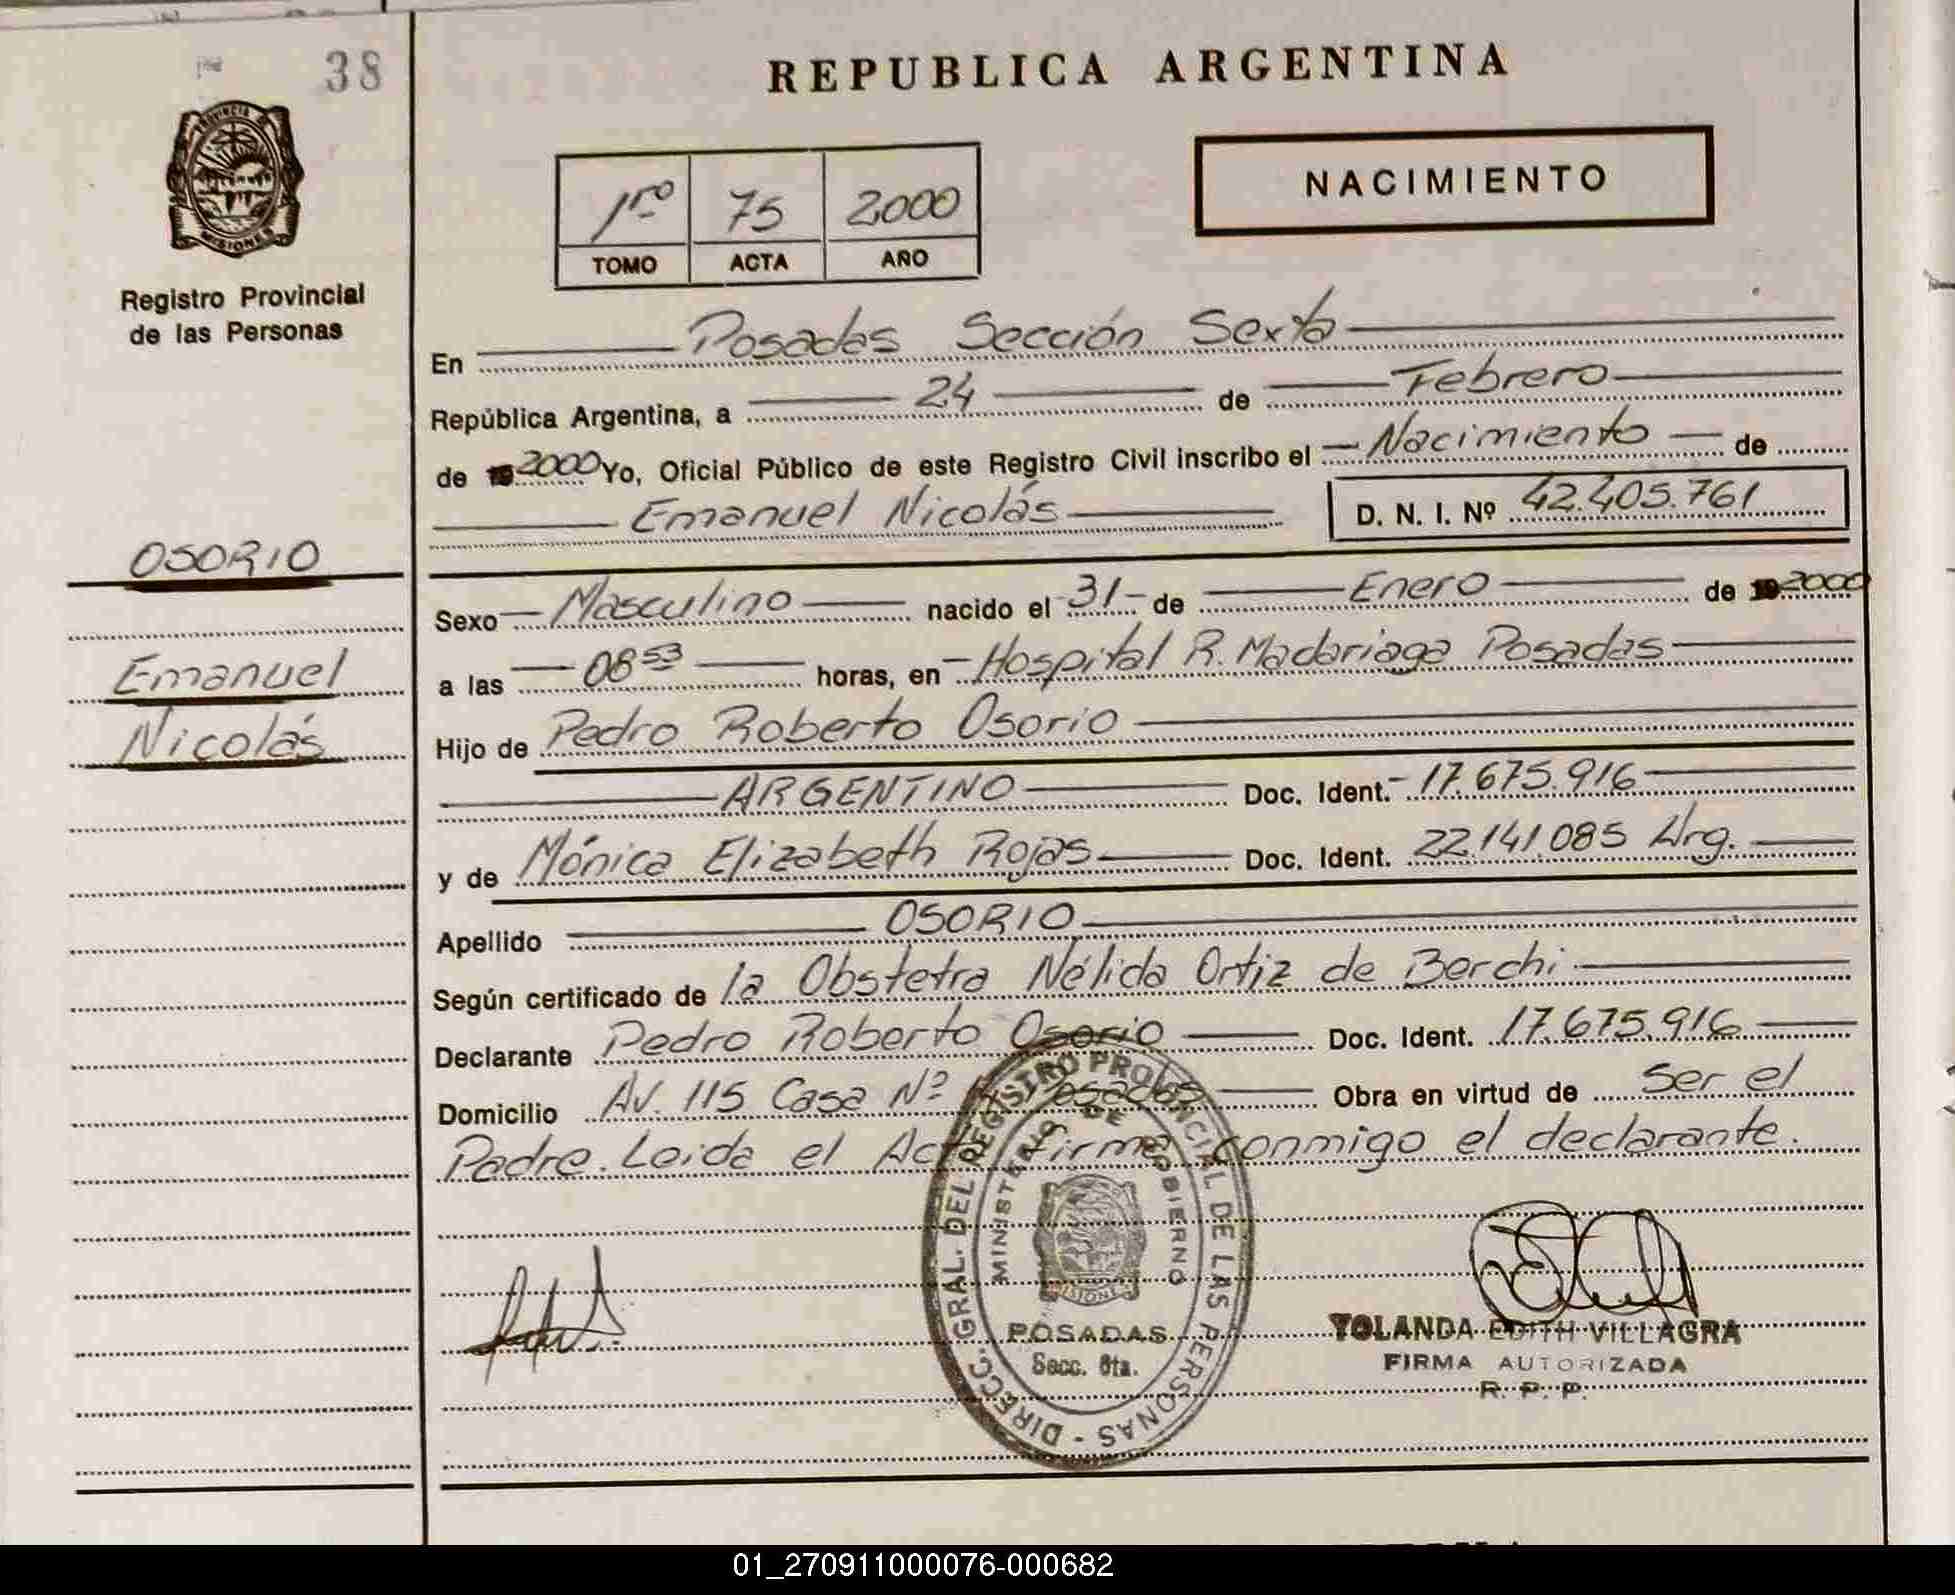 38
PROVINCIA DE
MISIONES
Registro Provincial
de las Personas
OSORIO
Emanuel
Nicolás
REPUBLICA ARGENTINA
1ro 75 2000
TOMO ACTA AÑO
NACIMIENTO
En Posadas Sección Sexta
República Argentina, a 24 de Febrero
de 2000 Yo, Oficial Público de este Registro Civil inscribo el Nacimiento de
Emanuel Nicolás D. N. I. Nº 42.405.761
Sexo Masculino nacido el 31 de Enero de 2000
a las 08 53 horas, en Hospital R. Madariaga Posadas
Hijo de Pedro Roberto Osorio
ARGENTINO Doc. Ident. 17.675.916
y de Mónica Elizabeth Rojas Doc. Ident. 22.141.085 Arg.
Apellido OSORIO
Según certificado de la Obstetra Nélida Ortiz de Berchi
Declarante Pedro Roberto Osorio Doc. Ident. 17.675.916
Domicilio Av. 115 Casa Nº Posadas Obra en virtud de Ser el
Padre. Leida el Acta firma conmigo el declarante.
DIRECC. GRAL. DEL REGISTRO PROVINCIAL DE LAS PERSONAS -
MINISTERIO DE GOBIERNO
MISIONES
POSADAS
Secc. 6ta.
YOLANDA EDITH VILLAGRA
FIRMA AUTORIZADA
R. P. P.
01_270911000076-000682